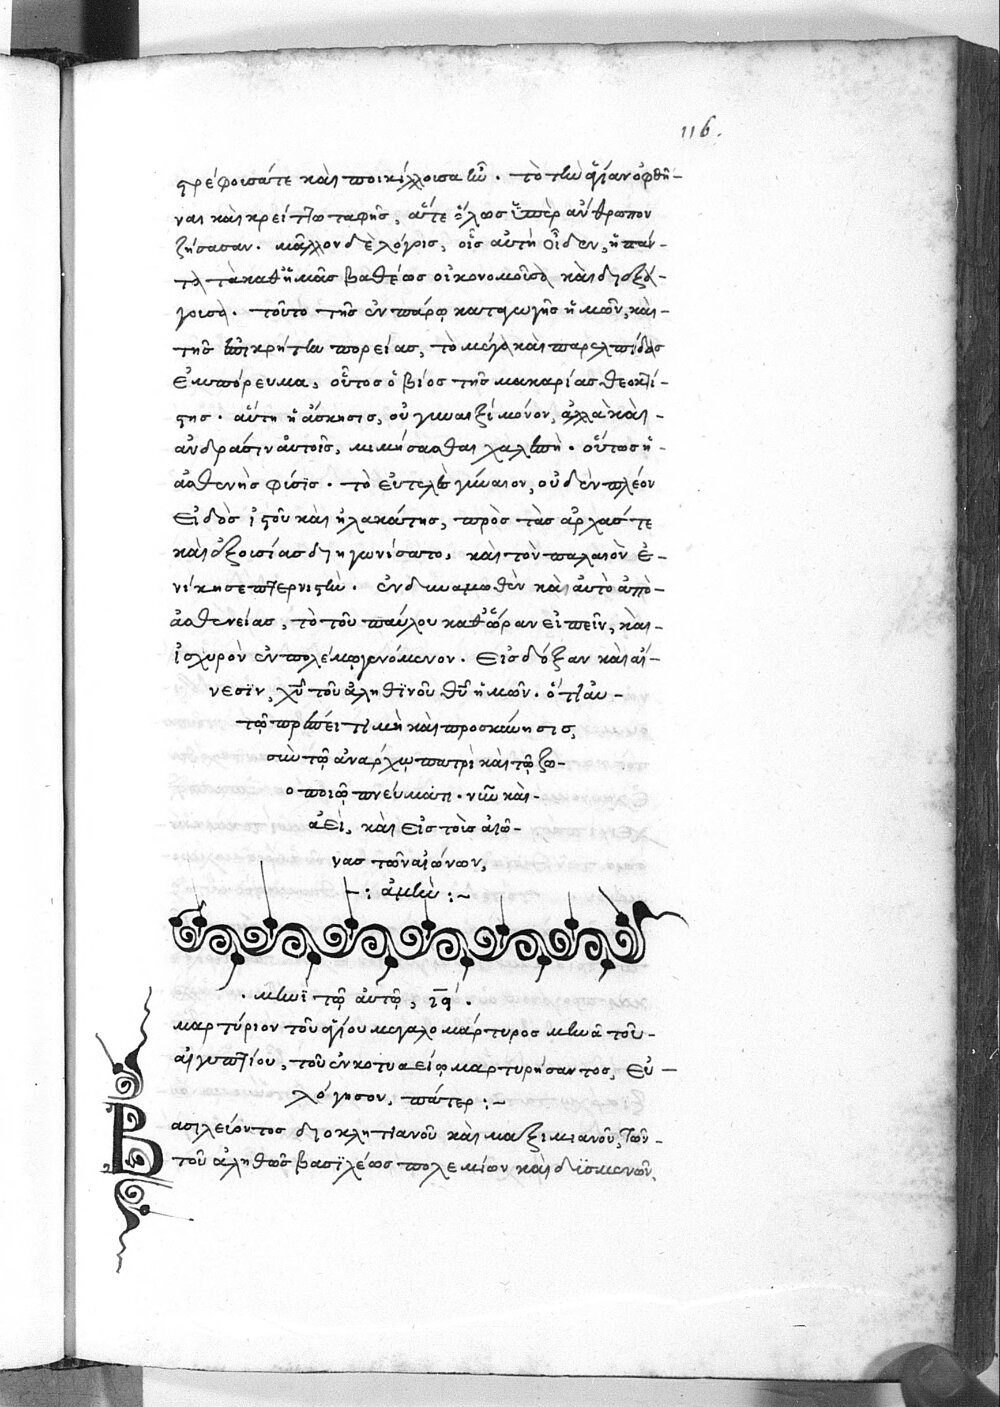 116.
στρέφοισά τε καὶ ποικίλλοισα ἦν. τὸ τὴν ἁγίαν ὀφθῆ-
ναι καὶ κρείττω ταφῆς, ἅτε ὅλως ὑπὲρ ἄνθρωπον
ζήσασαν. μᾶλλον δὲ λόγοις, οἷς αὐτὴ οἶδεν, ἡ πάν-
τα τὰ καθ' ἡμᾶς βαθέως οἰκονομοῦσα καὶ διεξά-
γοισα. τοῦτο τῆς ἐν πάρῳ καταγωγῆς ἡμῶν, καὶ
τῆς ἐπὶ κρήτην πορείας, τὸ μέγα καὶ παρ' ἐλπίδας
ἐμπόρευμα, οὗτος ὁ βίος τῆς μακαρίας θεοκτί-
στης. αὕτη ἡ ἄσκησις, οὐ γυναιξὶ μόνον, ἀλλὰ καὶ
ἀνδράσιν αὐτοῖς, μιμήσασθαι χαλεπή. οὕτως ἡ
ἀσθενὴς φύσις. τὸ εὐτελὲς γύναιον, οὐδὲν πλέον
εἰδὸς ἱστοῦ καὶ ἠλακάτης, πρὸς τὰς ἀρχάς τε
καὶ ἐξουσίας διηγωνίσατο, καὶ τὸν παλαιὸν ἐ-
νίκησε πτερνιστήν. ἐνδυναμωθὲν καὶ αὐτὸ ἀπὸ
ἀσθενείας, τὸ τοῦ παύλου καθ' ὥραν εἰπεῖν, καὶ
ἰσχυρὸν ἐν πολέμῳ γενόμενον. εἰς δόξαν καὶ αἴ-
νεσιν, χυ τοῦ ἀληθινοῦ θυ ἡμῶν. ὅτι αὐ-
τῷ πρέπει τιμὴ καὶ προσκύνησις,
σὺν τῷ ἀνάρχῳ πατρὶ καὶ τῷ ζω-
οποιῷ πνεύματι. νῦν καὶ
ἀεὶ, καὶ εἰς τοὺς αἰῶ-
νας τῶν αἰώνων,
-: ἀμήν :~
. μηνὶ τῷ αὐτῷ, ια.
μαρτύριον τοῦ ἁγίου μεγαλομάρτυρος μηνᾶ τοῦ
αἰγυπτίου, τοῦ ἐν κοτυαείῳ μαρτυρήσαντος, εὐ-
λόγησον, πάτερ :~
Βασιλεύοντος διοκλητιανοῦ καὶ μαξιμιανοῦ, τῶν
τοῦ ἀληθῶς βασιλέως πολεμίων καὶ δυσμενῶν,